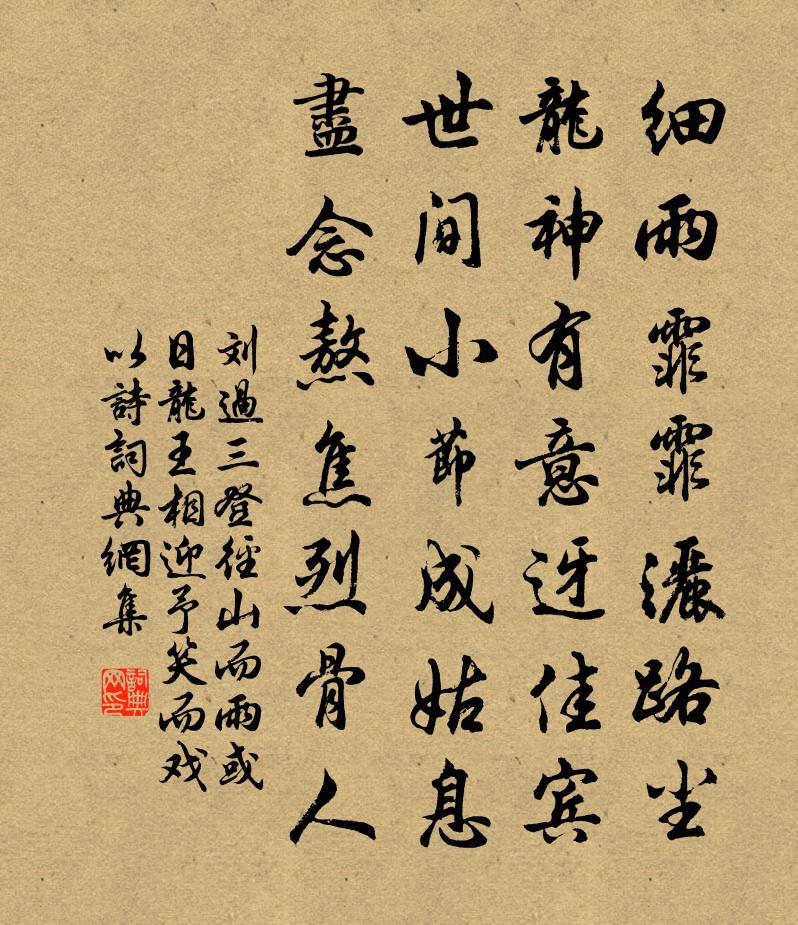 细雨霏霏灑路尘
龍神有意迓佳宾
世间小節成姑息
盡念熬焦烈骨人
刘過三登徑山而雨或
日龍王相迎予笑而戏
以詩詞典網集
詞典网印